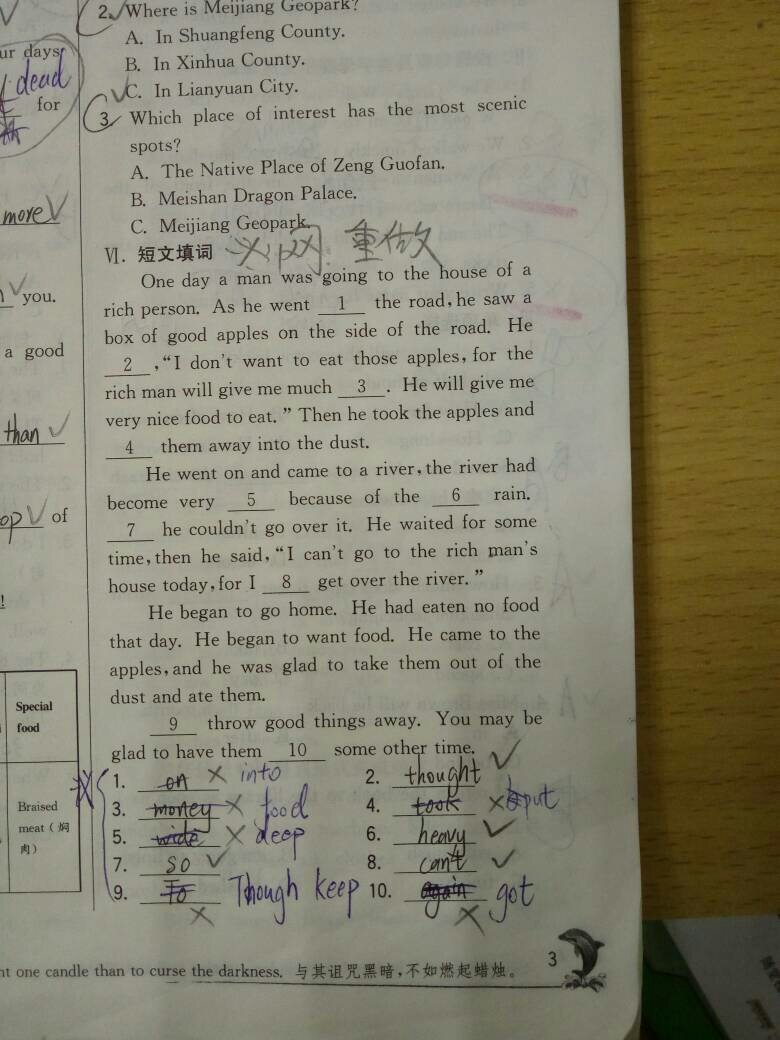 ur days
dead
for
more
you.
a good
than
op of
!
Special
food
Braised
meat ( 焖
肉)
2. Where is Meijiang Geopark?
A. In Shuangfeng County.
B. In Xinhua County.
C. In Lianyuan City.
3. Which place of interest has the most scenic
spots?
A. The Native Place of Zeng Guofan.
B. Meishan Dragon Palace.
C. Meijiang Geopark.
Ⅵ. 短文填词 重做
One day a man was going to the house of a
rich person. As he went 1 the road, he saw a
box of good apples on the side of the road. He
2 , “I don't want to eat those apples, for the
rich man will give me much 3 . He will give me
very nice food to eat. ” Then he took the apples and
4 them away into the dust.
He went on and came to a river, the river had
become very 5 because of the 6 rain.
7 he couldn't go over it. He waited for some
time, then he said, “I can't go to the rich man's
house today, for I 8 get over the river. ”
He began to go home. He had eaten no food
that day. He began to want food. He came to the
apples, and he was glad to take them out of the
dust and ate them.
9 throw good things away. You may be
glad to have them 10 some other time.
1. on into 2. thought
3. money food 4. took put
5. wide deep 6. heavy
7. so 8. can't
9. To Though keep 10. again got
nt one candle than to curse the darkness. 与其诅咒黑暗，不如燃起蜡烛。 3